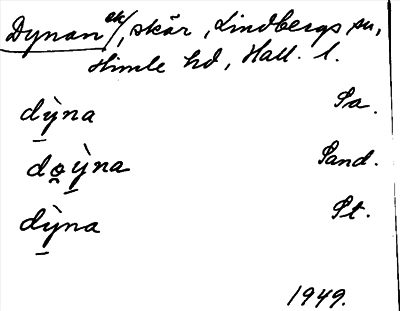 Dynan ek/, skär, Lindbergs sn,
Himle hd, Hall. l.
dỳ̠na Sa.
do̠ỳ̠na Sand.
dỳ̠na St.
1949.